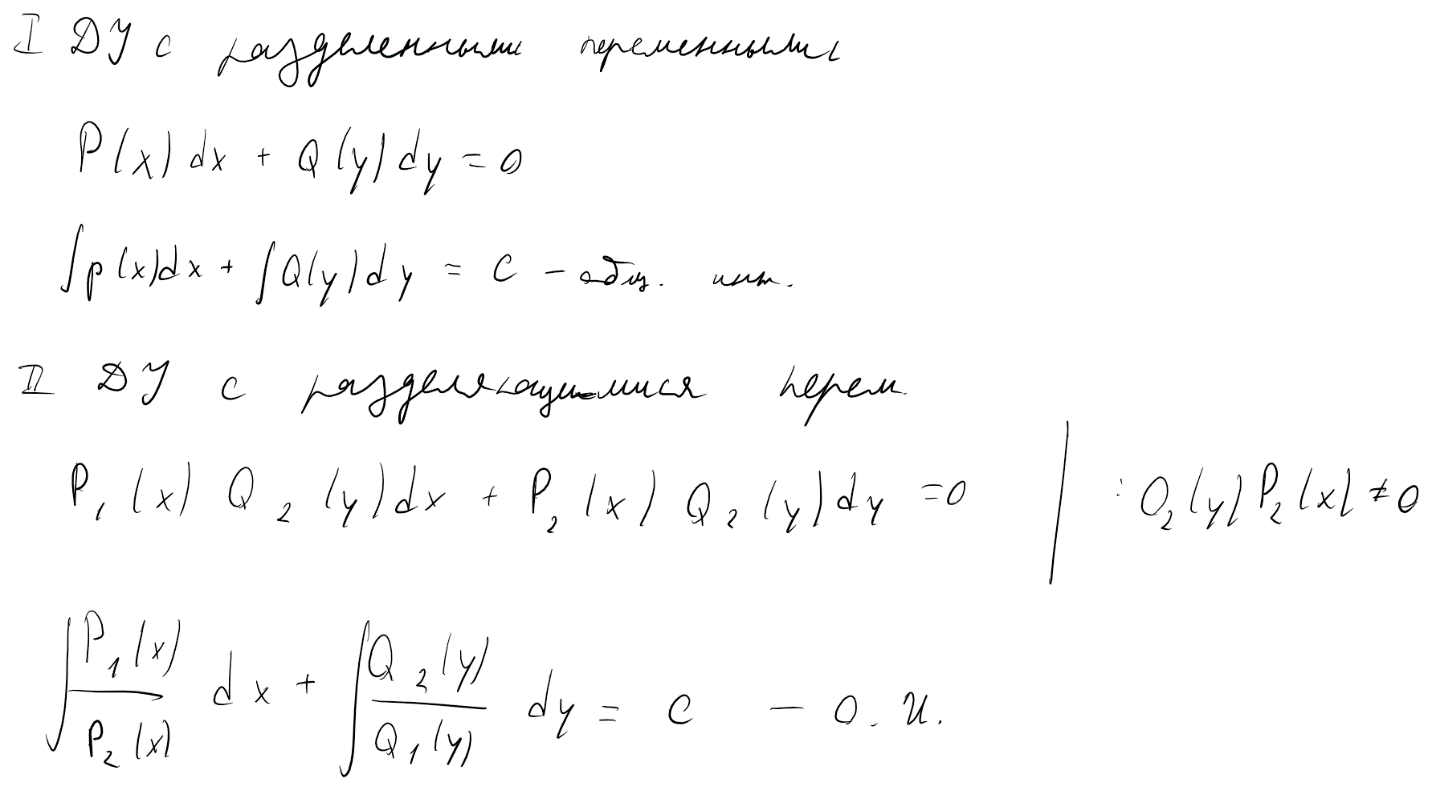 I ДУ с разделенными переменными
P(x)dx + Q(y)dy = 0
∫p(x)dx + ∫Q(y)dy = C – общ. инт.
II ДУ с разделяющимися перем.
P₁(x) Q₂(y)dx + P₂(x) Q₂(y)dy = 0 | : Q₂(y)P₂(x) ≠ 0
∫ P₁(x)/P₂(x) dx + ∫ Q₂(y)/Q₁(y) dy = C – О. И.